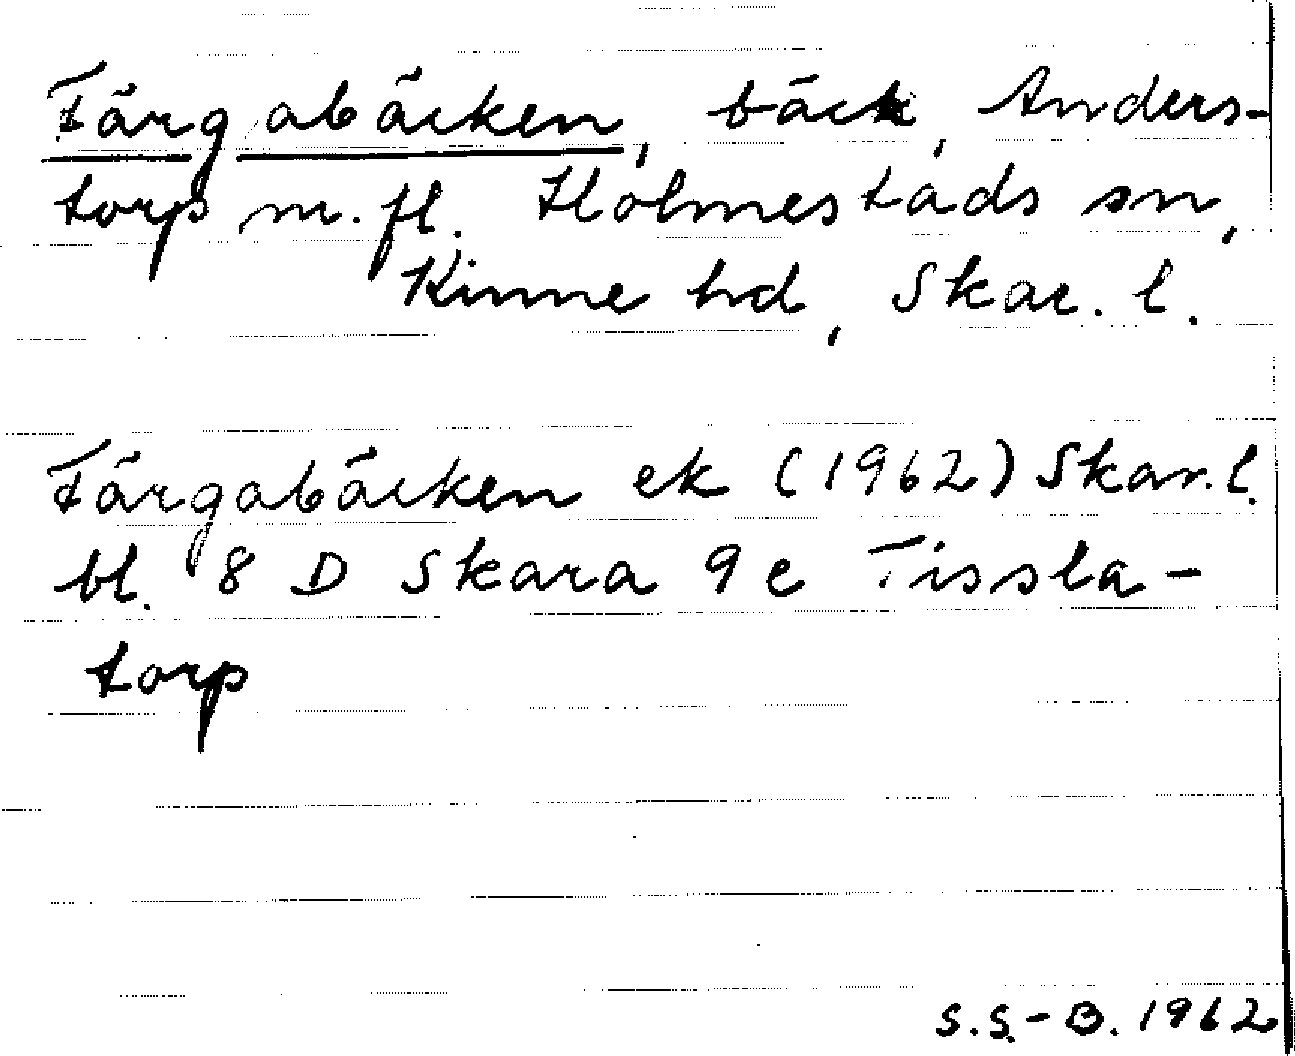 Färgabäcken, bäck, Anders-
torp m. fl. Holmestads sn,
Kinne hd, Skar. l.
Färgabäcken ek (1962) Skar. l.
bl. 8 D Skara 9 e Tissla-
torp
S.S.-B. 1962